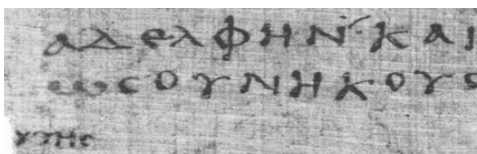 ΑΔΕΛΦΗΝ·ΚΑΙ
ωϲΟΥΝΗΚΟΥϲ
υτηϲ